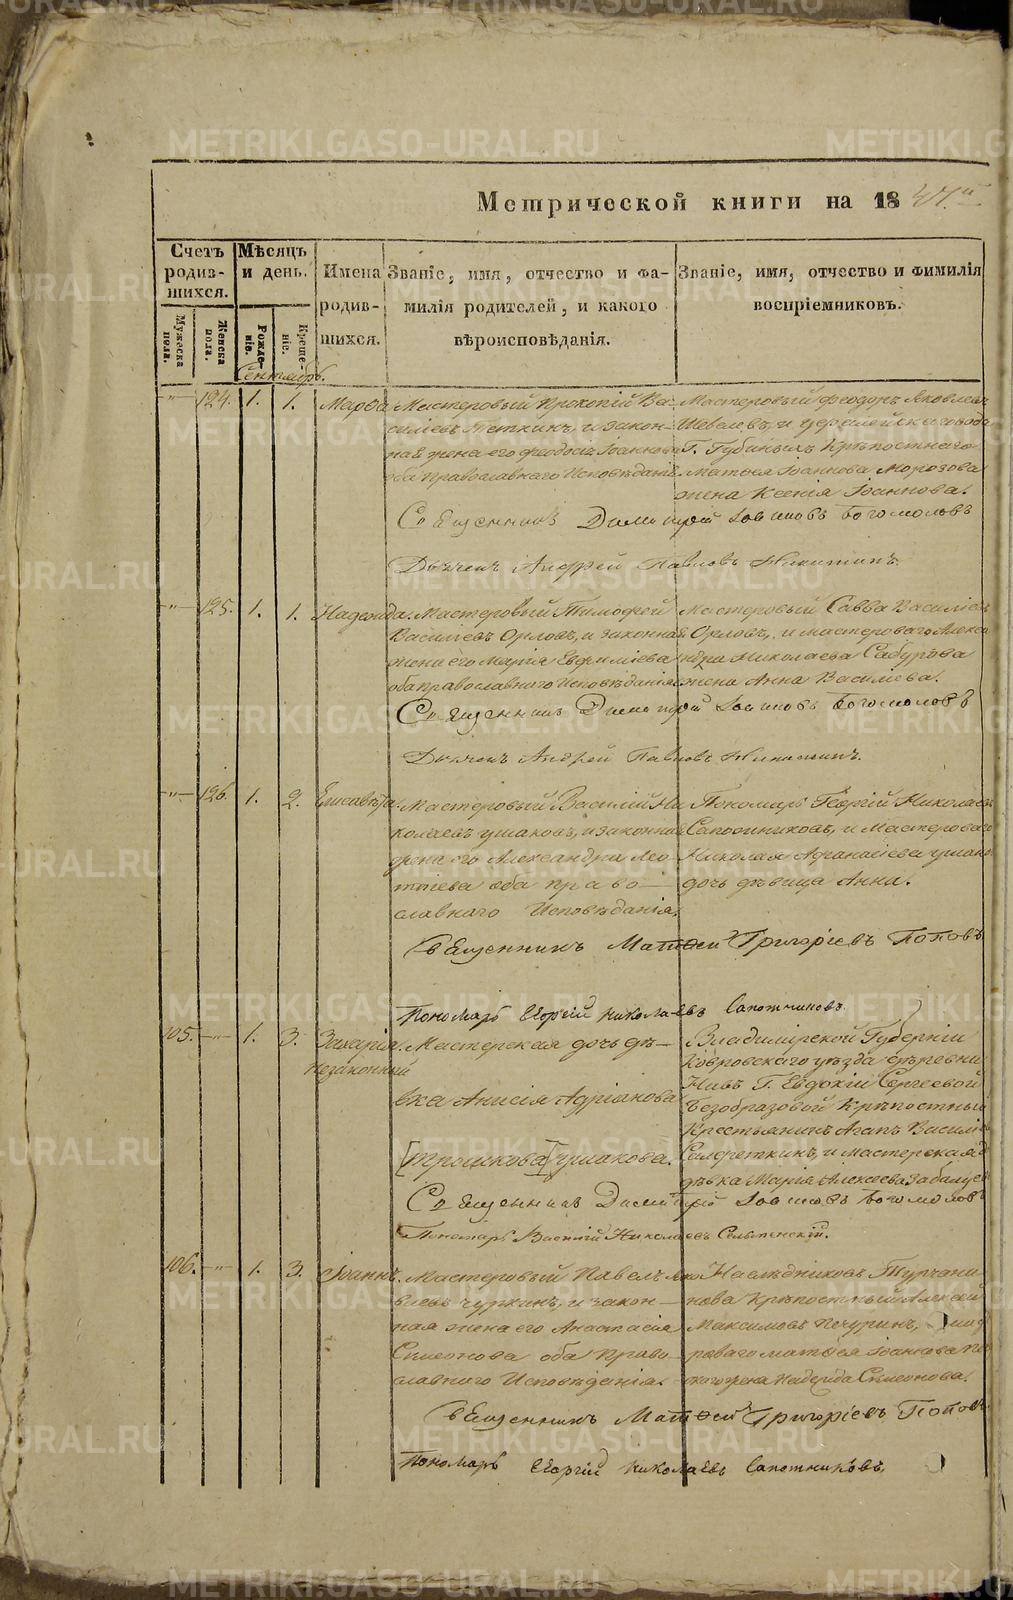 METRIKI.GASO-URAL.RU
Метрической книги на 1847й
Счетъ родив-шихся.
Мѣсяцъ и день.
Имена родив-шихся.
Званіе, имя, отчество и фа-
милія родителей, и какого
вѣроисповѣданія.
Званіе, имя, отчество и фимилія
воспріемниковъ.
Мужеска пола.
Женска пола.
Рожде-ніе.
Креще-ніе.
Сентябрь.
—"— 124. 1. 1. Марѳа
Мастеровый Прокопій Ва-
силіевъ Теткинъ, и закон-
ная жена его Ѳеодосія Іоаннова
оба Православнаго Исповѣданія.
Мастеровый Ѳеодоръ Яковлевъ
Шевелевъ, и
Г. Губиныхъ Крѣпостнаго
Матѳея Іоаннова Морозова
жена Ксенія Іоаннова.
Священникъ Димитрій Іовиновъ Богомоловъ
Дьячекъ Андрей Павловъ Никитинъ.
—"— 125. 1. 1. Надежда.
Мастеровый Тимофей
Василіевъ Орловъ, и законная
жена его Марія Евфиміева
оба православнаго Исповѣданія
Мастеровый Савва Василіев
Орловъ, и мастероваго Алекса
ндра Николаева Сабурова
жена Анна Василіева.
Священникъ Димитрій Іовиновъ Богомоловъ
Дьячекъ Андрей Павловъ Никитинъ.
—"— 126. 1. 2. Елисавѣта.
Мастеровый Василій Ни
колаевъ Ушаковъ, и законная
жена его Александра Лео-
нтіева оба право-
славнаго Исповѣданія.
Пономарь Георгій Николаевъ
Сапожниковъ, и Мастероваго
Николая Афанасіева Ушако
дочь дѣвица Анна.
Священникъ Матѳей Григоріевъ Поповъ
Пономарь Георгій Николаевъ Сапожниковъ.
105. —"— 1. 3. Захарія.
Незаконный
Мастерская дочь дѣ-
вка Анисія Адріанова
[Трошкова] Ушакова.
Владимірской Губерніи
Ковровскаго уѣзда деревни
Нивъ Г. Евдокіи Сергеевой
Безобразовой Крѣпостный
Крестьянинъ Агапъ Василіе
Салфеткинъ, и мастерская
дѣвка Марія Алексѣева
Священникъ Димитрій Іовиновъ Богомоловъ
Пономарь Василій Николаевъ Сельменскій.
106. —"— 1. 3. Іоаннъ.
Мастеровый Павелъ Яко
влевъ Чуркинъ, и закон-
ная жена его Анастасія
Симеонова оба Право-
славнаго Исповѣданія.
Наслѣдниковъ Турчани
нова Крѣпостный Алексѣй
Максимовъ Печуринъ,
Матѳея Іоаннова
жена Надежда Симеонова.
Священникъ Матѳей Григоріевъ Поповъ
Пономарь Георгій Николаевъ Сапожниковъ.